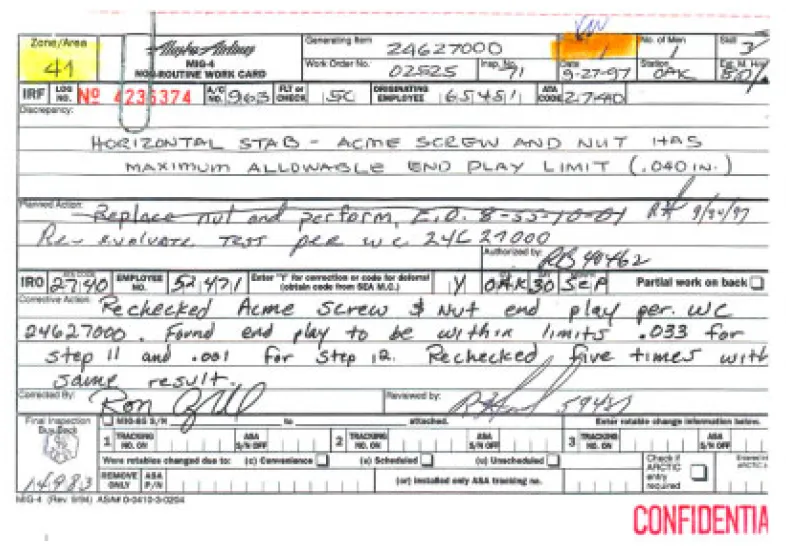 Zone/Area
41
Alaska Airlines
MIG-4
NON-ROUTINE WORK CARD
Generating Item 24627000
1
No. of Men 1
Skill 3
Work Order No. 02525
Insp. No. 71
Date 9-27-97
Station OAK
IRF LOG NO. No 4236374 A/C NO. 963 FLT or CHECK 5C ORIGINATING EMPLOYEE 65451 ATA CODE 27:40
Discrepancy:
HORIZONTAL STAB - ACME SCREW AND NUT HAS
MAXIMUM ALLOWABLE END PLAY LIMIT (.040 IN.)
Planned Action: Replace nut and perform E.O. 8-55-10-01
Re-evaluate test per WC 24627000
Authorized by:
IRO ATA CODE 27:40 EMPLOYEE NO. 52471 Enter "Y" for correction or code for deferral (obtain code from SEA M.C.) Y OAK 30 SEP Partial work on back
Corrective Action: Rechecked Acme Screw & Nut end play per. WC
24627000. Found end play to be within limits .033 for
step 11 and .001 for step 12. Rechecked five times with
same result.
Corrected By: Ron
Reviewed by:
Final Inspection
Buy-Back
MIG-8S S/N to attached. Enter rotable change information below.
1 TRACKING NO. ON ASA S/N OFF 2 TRACKING NO. ON ASA S/N OFF 3 TRACKING NO. ON ASA S/N OFF
Were rotables changed due to: (c) Convenience (s) Scheduled (u) Unscheduled
Check if ARCTIC entry required
14983
REMOVE ONLY ASA P/N (or) installed only ASA tracking no.
MIG-4 (Rev 9/94) ASM# 0-0410-3-0204
CONFIDENTIA